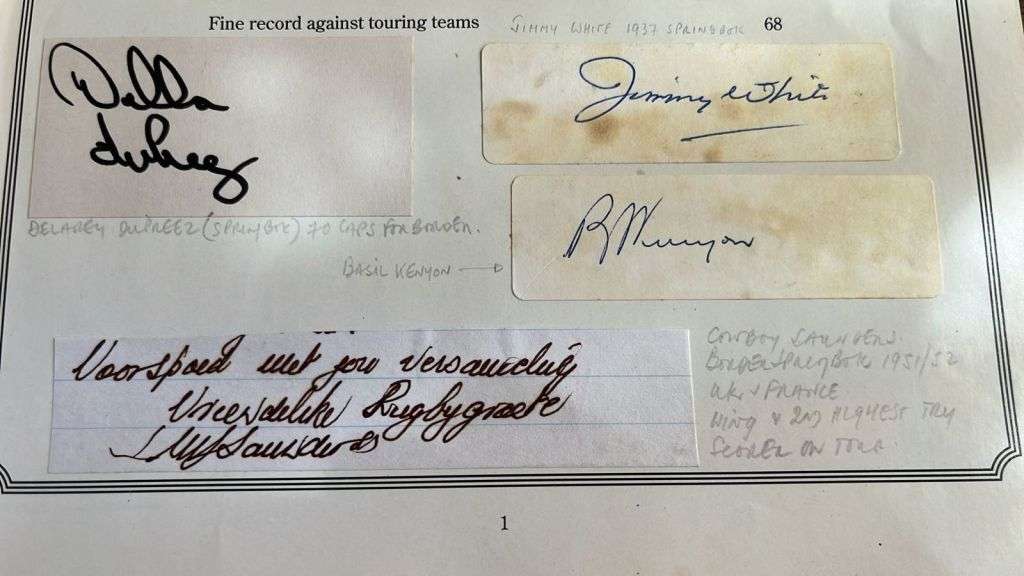 Fine record against touring teams JIMMY WHITE 1937 SPRINGBOK 68
Della
dupreez
Jimmy White
DELAREY DUPREEZ (SPRINGBOK) 70 CAPS FOR BORDER.
BKenyon
BASIL KENYON
Voorspoed met jou versameling
Vriendelike Rugbygroete
MJSaunders
COWBOY SAUNDERS.
BORDER SPRINGBOK 1951/52
U.K. & FRANCE
WING & 2ND HIGHEST TRY
SCORER ON TOUR
1